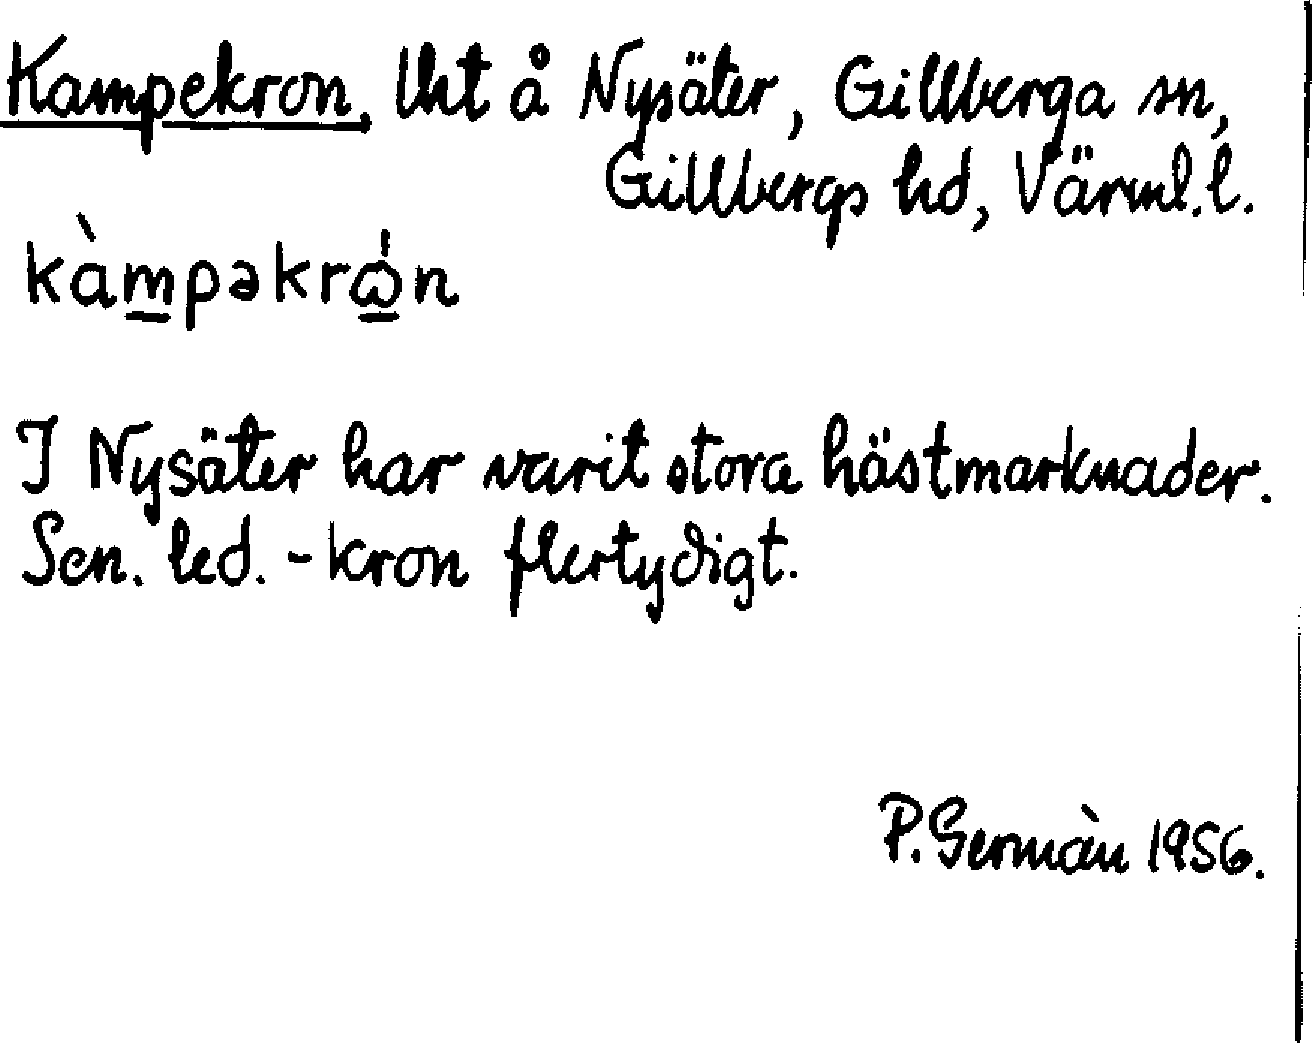 Kampekron, lht å Nysäter, Gillberga sn,
Gillbergs hd, Värml.l.
kàm̲pəkrώ̲n
I Nysäter har varit stora hästmarknader.
Sen. led. -kron flertydigt.
P. Germàn 1956.